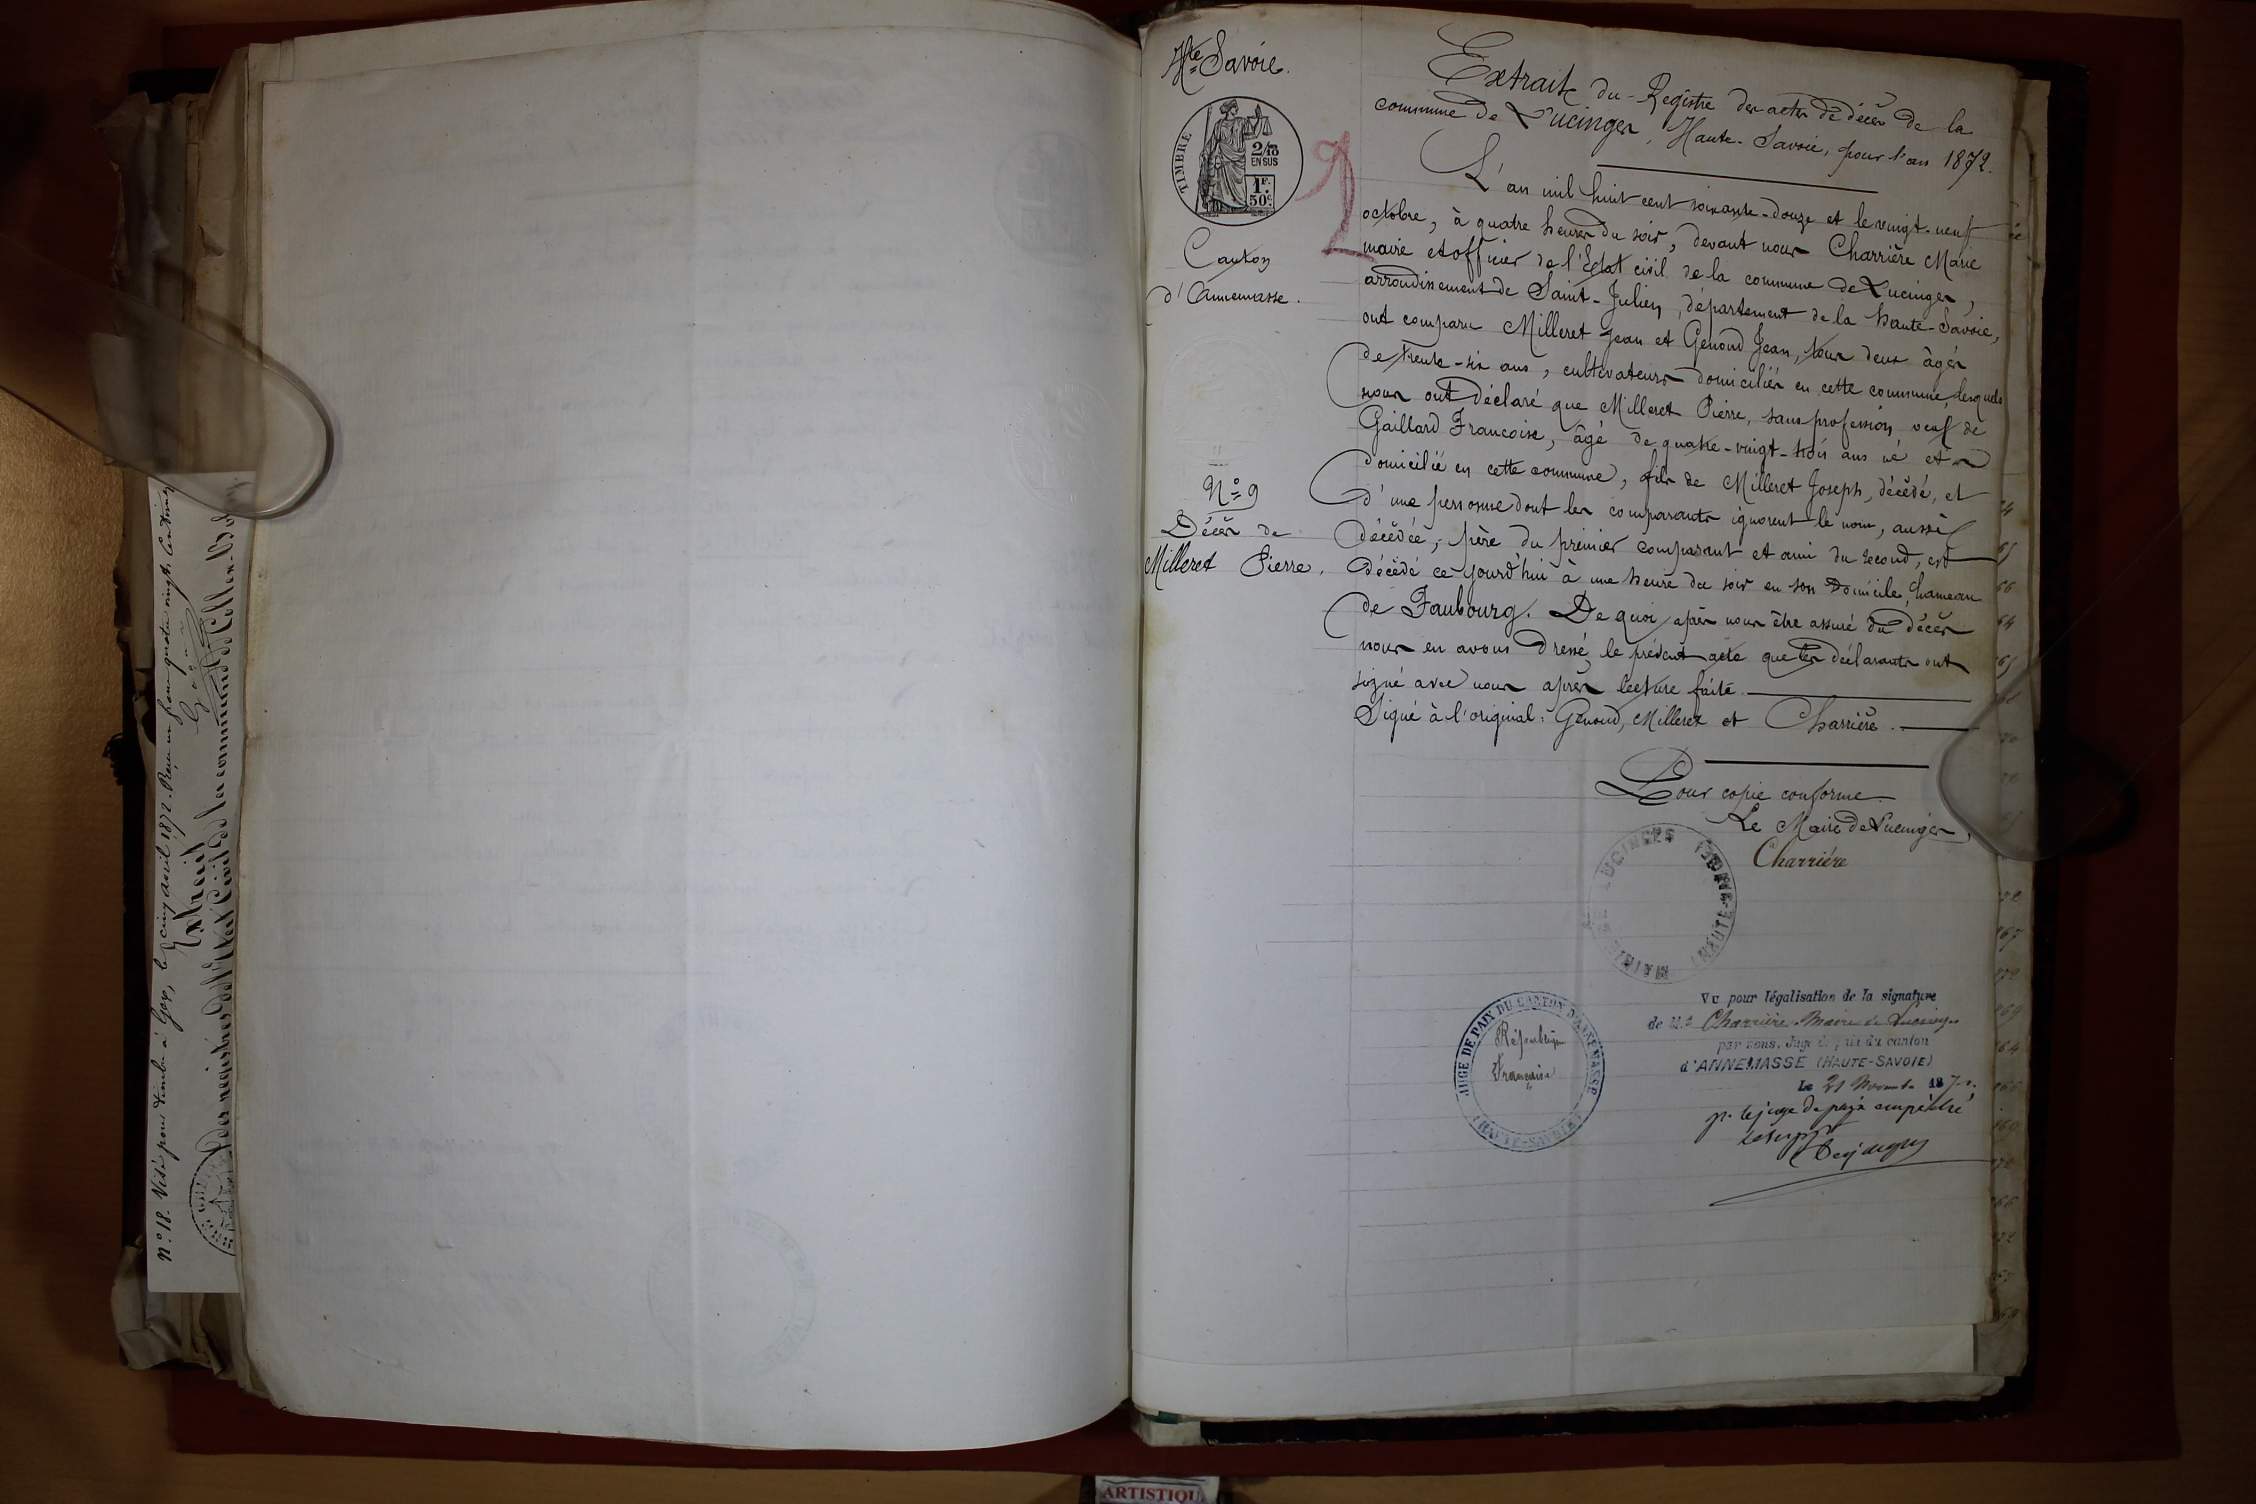 N.° 18. Visé pour timbre à Gex, le cinq avril 1872. Reçu un franc quatre vingts centimes
Extrait
des registres de l'Etat Civil de la commune de
Hte Savoie.
TIMBRE
2/10
EN SUS
1F.
50c
2
Canton
d'Annemasse.
N.° 9
Décès de
Milleret Pierre.
Extrait du Registre des actes de décès de la
commune de Lucinges, Haute-Savoie, pour l'an 1872.
L'an mil huit cent soixante-douze et le vingt-neuf
octobre, à quatre heures du soir, devant nous Charrière Marie
maire et officier de l'Etat civil de la commune de Lucinges,
arrondissement de Saint-Julien, département de la haute-Savoie,
ont comparu Milleret Jean et Genoud Jean, tous deux âgés
de trente-six ans, cultivateurs domiciliés en cette commune, lesquels
nous ont déclaré que Milleret Pierre, sans profession, veuf de
Gaillard Francoise, âgé de quatre-vingt-trois ans né et
domicilié en cette commune, fils de Milleret Joseph, décédé, et
d'une personne dont les comparants ignorent le nom, aussi
décédée, père du premier comparant et ami du second, est
décédé ce jourd'hui à une heure du soir en son domicile, hameau
de Faubourg. De quoi après nous être assuré du décès
nous en avons dressé le présent acte que les déclarants ont
signé avec nous après lecture faite.
Signé à l'original: Genoud, Milleret et Charrière.
Pour copie conforme
Le Maire de Lucinges,
Charrière
MAIRIE DE LUCINGES (HAUTE-SAVOIE)
JUGE DE PAIX DU CANTON D'ANNEMASSE
(HAUTE-SAVOIE)
République
Française
Vu pour légalisation de la signature
de Mr Charrière Maire de Lucinges
par nous, Juge de paix du canton
d'ANNEMASSE (HAUTE-SAVOIE)
Le 21 Novembre 1872.
pr. le juge de paix empêché
le suppt
ARTISTIQU